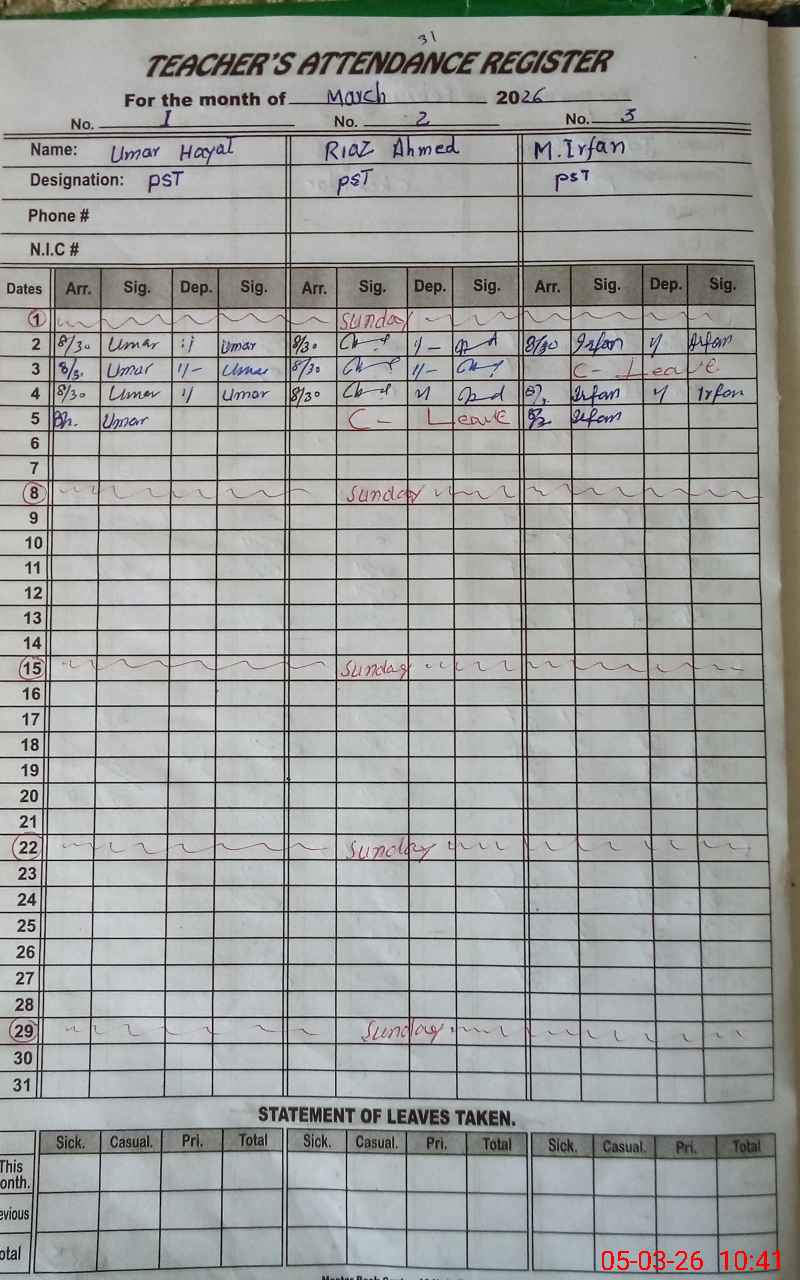 31
TEACHER'S ATTENDANCE REGISTER
For the month of March 2026
No. 1 No. 2 No. 3
Name: Umar Hayat Riaz Ahmed M. Irfan
Designation: PST PST PST
Phone #
N.I.C #
Dates Arr. Sig. Dep. Sig. Arr. Sig. Dep. Sig. Arr. Sig. Dep. Sig.
1 Sunday
2 8/30 Umar Umar 8/30 8/30 Irfan Irfan
3 Umar Umar 8/30 C- Leave
4 8/30 Umar Umar 8/30 Irfan Irfan
5 Umar C- Leave Irfan
6
7
8 Sunday
9
10
11
12
13
14
15 Sunday
16
17
18
19
20
21
22 Sunday
23
24
25
26
27
28
29 Sunday
30
31
STATEMENT OF LEAVES TAKEN.
Sick. Casual. Pri. Total Sick. Casual. Pri. Total Sick. Casual. Pri. Total
This
onth.
evious
otal
05-03-26 10:41